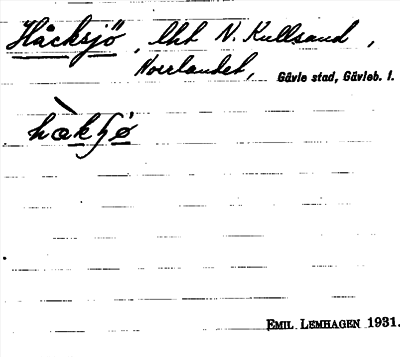 Håcksjö, lht N. Kullsand,
Norrlandet, Gävle stad, Gävleb. l.
hàkʃø
EMIL LEMHAGEN 1931.